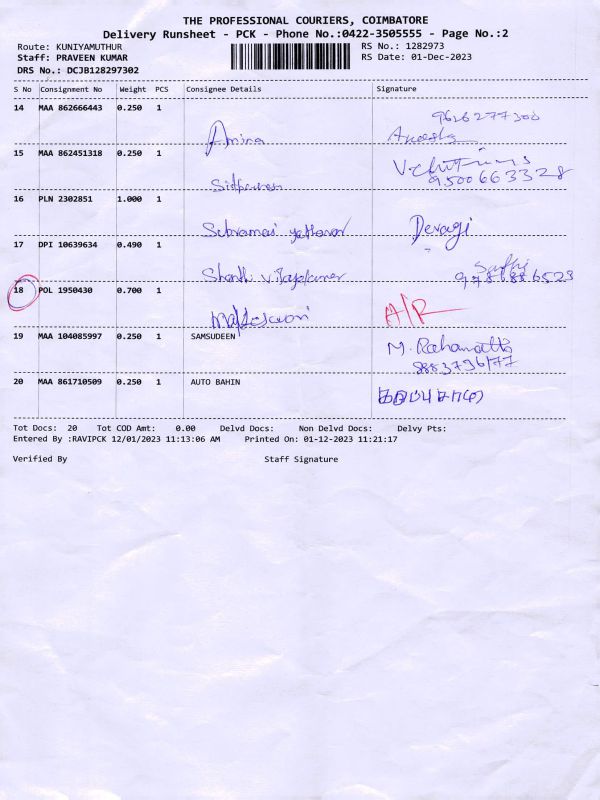 THE PROFESSIONAL COURIERS, COIMBATORE
Delivery Runsheet - PCK - Phone No.:0422-3505555 - Page No.:2
Route: KUNIYAMUTHUR RS No.: 1282973
Staff: PRAVEEN KUMAR RS Date: 01-Dec-2023
DRS No.: DCJB128297302
S No Consignment No Weight PCS Consignee Details Signature
14 MAA 862666443 0.250 1
Amina 9626277300
15 MAA 862451318 0.250 1
9500663328
16 PLN 2302851 1.000 1
Devagi
17 DPI 10639634 0.490 1
Shanthi Vijayakumar
18 POL 1950430 0.700 1
A/R
19 MAA 104085997 0.250 1 SAMSUDEEN
M.
8883736177
20 MAA 861710509 0.250 1 AUTO BAHIN
Tot Docs: 20 Tot COD Amt: 0.00 Delvd Docs: Non Delvd Docs: Delvy Pts:
Entered By :RAVIPCK 12/01/2023 11:13:06 AM Printed On: 01-12-2023 11:21:17
Verified By Staff Signature